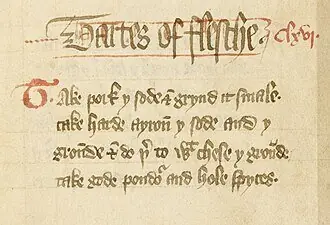 Tartes of flesche clxvi.
Take pork y sode & grynd it smale.
take harde ayroun y sode and y
gronde & do þ to wt chese y gronde
take gode poudr and hole spyces.